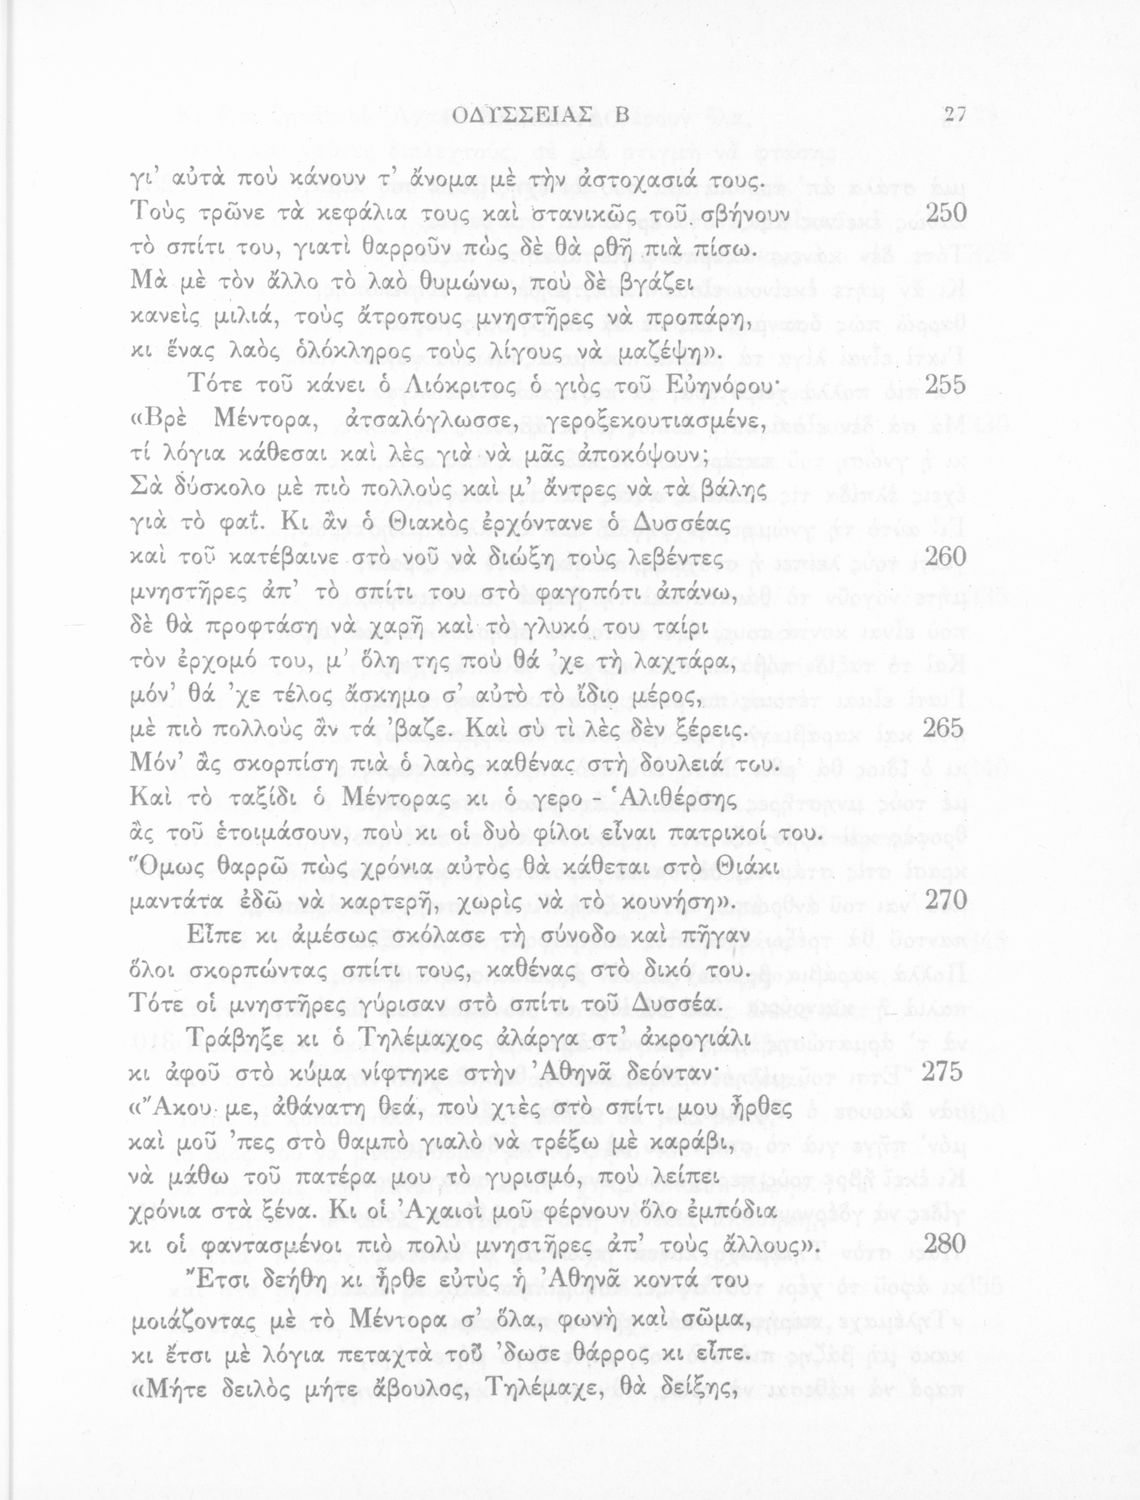 ΟΔΥΣΣΕΙΑΣ Β 27
γι’ αὐτὰ ποὺ κάνουν τ’ ἄνομα μὲ τὴν ἀστοχασιά τους.
Τοὺς τρῶνε τὰ κεφάλια τους καὶ στανικῶς τοῦ σβήνουν 250
τὸ σπίτι του, γιατὶ θαρροῦν πὼς δὲ θὰ ρθῆ πιὰ πίσω.
Μὰ μὲ τὸν ἄλλο τὸ λαὸ θυμώνω, ποὺ δὲ βγάζει
κανεὶς μιλιά, τοὺς ἄτροπους μνηστῆρες νὰ προπάρη,
κι ἕνας λαὸς ὁλόκληρος τοὺς λίγους νὰ μαζέψη».
Τότε τοῦ κάνει ὁ Λιόκριτος ὁ γιὸς τοῦ Εὐηνόρου· 255
«Βρὲ Μέντορα, ἀτσαλόγλωσσε, γεροξεκουτιασμένε,
τί λόγια κάθεσαι καὶ λὲς γιὰ νὰ μᾶς ἀποκόψουν;
Σὰ δύσκολο μὲ πιὸ πολλοὺς καὶ μ’ ἄντρες νὰ τὰ βάλης
γιὰ τὸ φαΐ. Κι ἂν ὁ Θιακὸς ἐρχόντανε ὁ Δυσσέας
καὶ τοῦ κατέβαινε στὸ νοῦ νὰ διώξη τοὺς λεβέντες 260
μνηστῆρες ἀπ’ τὸ σπίτι του στὸ φαγοπότι ἀπάνω,
δὲ θὰ προφτάση νὰ χαρῆ καὶ τὸ γλυκό του ταίρι
τὸν ἐρχομό του, μ’ ὅλη της ποὺ θά ’χε τὴ λαχτάρα,
μόν’ θά ’χε τέλος ἄσκημο σ’ αὐτὸ τὸ ἴδιο μέρος,
μὲ πιὸ πολλοὺς ἂν τά ’βαζε. Καὶ σὺ τὶ λὲς δὲν ξέρεις. 265
Μόν’ ἂς σκορπίση πιὰ ὁ λαὸς καθένας στὴ δουλειά του.
Καὶ τὸ ταξίδι ὁ Μέντορας κι ὁ γερο - Ἁλιθέρσης
ἂς τοῦ ἑτοιμάσουν, ποὺ κι οἱ δυὸ φίλοι εἶναι πατρικοί του.
Ὅμως θαρρῶ πὼς χρόνια αὐτὸς θὰ κάθεται στὸ Θιάκι
μαντάτα ἐδῶ νὰ καρτερῆ, χωρὶς νὰ τὸ κουνήση». 270
Εἶπε κι ἀμέσως σκόλασε τὴ σύνοδο καὶ πῆγαν
ὅλοι σκορπώντας σπίτι τους, καθένας στὸ δικό του.
Τότε οἱ μνηστῆρες γύρισαν στὸ σπίτι τοῦ Δυσσέα.
Τράβηξε κι ὁ Τηλέμαχος ἀλάργα στ’ ἀκρογιάλι
κι ἀφοῦ στὸ κύμα νίφτηκε στὴν Ἀθηνᾶ δεόνταν· 275
«Ἄκου με, ἀθάνατη θεά, ποὺ χτὲς στὸ σπίτι μου ἦρθες
καὶ μοῦ ’πες στὸ θαμπὸ γιαλὸ νὰ τρέξω μὲ καράβι,
νὰ μάθω τοῦ πατέρα μου τὸ γυρισμό, ποὺ λείπει
χρόνια στὰ ξένα. Κι οἱ Ἀχαιοὶ μοῦ φέρνουν ὅλο ἐμπόδια
κι οἱ φαντασμένοι πιὸ πολὺ μνηστῆρες ἀπ’ τοὺς ἄλλους». 280
Ἔτσι δεήθη κι ἦρθε εὐτὺς ἡ Ἀθηνᾶ κοντά του
μοιάζοντας μὲ τὸ Μέντορα σ’ ὅλα, φωνὴ καὶ σῶμα,
κι ἔτσι μὲ λόγια πεταχτὰ τοῦ ’δωσε θάρρος κι εἶπε.
«Μήτε δειλὸς μήτε ἄβουλος, Τηλέμαχε, θὰ δείξης,